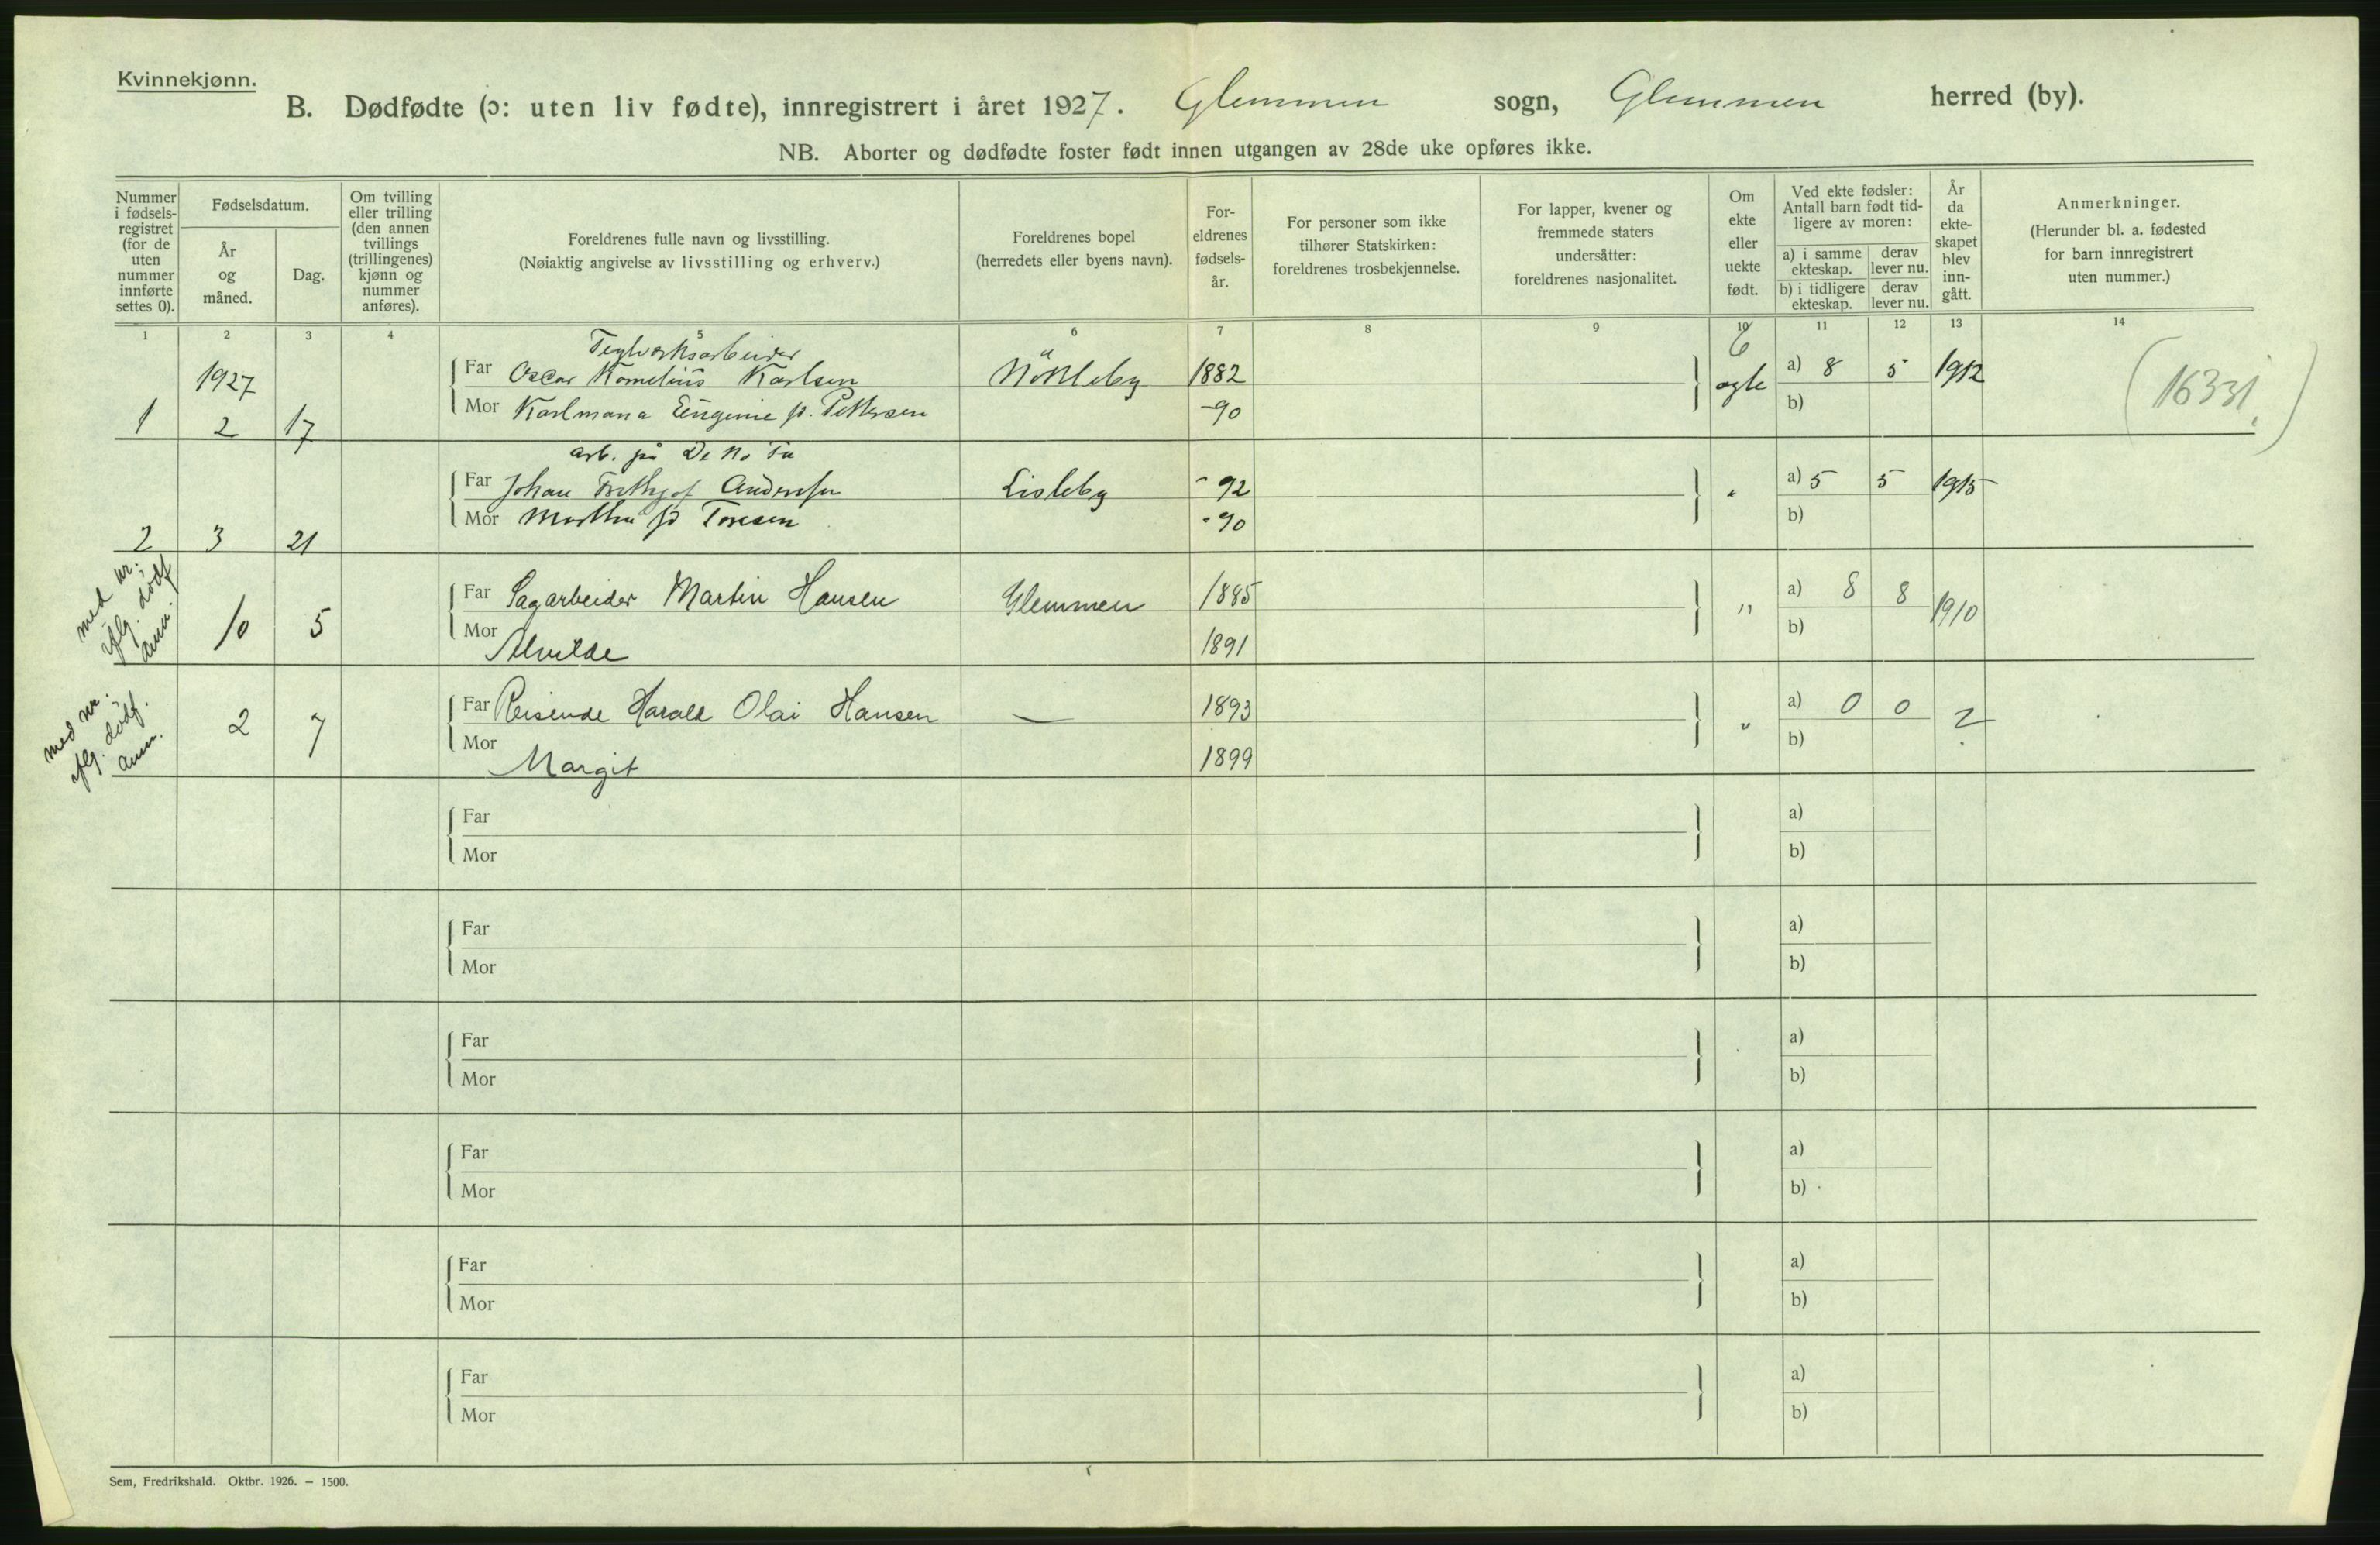 Kvinnekjønn.
B. Dødfødte (ɔ: uten liv fødte), innregistrert i året 1927. Glemmen sogn, Glemmen herred (by).
NB. Aborter og dødfødte foster født innen utgangen av 28de uke opføres ikke.
Nummer i fødsels-registret (for de uten nummer innførte settes 0).
Fødselsdatum.
År og måned.
Dag.
Om tvilling eller trilling (den annen tvillings (trillingenes) kjønn og nummer anføres).
Foreldrenes fulle navn og livsstilling.
(Nøiaktig angivelse av livsstilling og erhverv.)
Foreldrenes bopel
(herredets eller byens navn).
For-eldrenes fødsels-år.
For personer som ikke tilhører Statskirken: foreldrenes trosbekjennelse.
For lapper, kvener og fremmede staters undersåtter: foreldrenes nasjonalitet.
Om ekte eller uekte født.
Ved ekte fødsler: Antall barn født tid-ligere av moren:
a) i samme ekteskap. derav lever nu.
b) i tidligere ekteskap. derav lever nu.
År da ekte-skapet blev inn-gått.
Anmerkninger.
(Herunder bl. a. fødested for barn innregistrert uten nummer.)
1 2 3 4 5 6 7 8 9 10 11 12 13 14
6
Teglverksarbeider
1927 Far Oscar Kornelius Karlsen 1882 a) 8 5 1912 (16331)
1 2 17 Mor Karlmana Eugenie f. Pettersen -90 b)
arb. på De No Fa
Far Johan Andersen Lisleby -92 a) 5 5 1915
2 3 21 Mor f Toresen -90 b)
med nr. iflg. dödf ann.
10 5 Far Sagarbeider Martin Hansen Glemmen 1885 " a) 8 8 1910
Mor Alvilde 1891 b)
med nr. iflg. dödf. ann.
2 7 Far Reisende Harald Olai Hansen — 1893 " a) 0 0 ?
Mor Margit 1899 b)
Far a)
Mor b)
Far a)
Mor b)
Far a)
Mor b)
Far a)
Mor b)
Far a)
Mor b)
Far a)
Mor b)
Sem, Fredrikshald. Oktbr. 1926. – 1500.